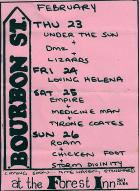 FEBRUARY
BOURBON ST.
THU 23
UNDER THE SUN
+
DMZ
+
LIZARDS
FRI 24
LOVING HELENA
SAT 25
EMPIRE
+
MEDICINE MAN
+
TYRONE COATES
SUN 26
ROAM
+
CHICKEN FOOT
+
STORM DIVINITY
COMING SOON
at the Forest Inn